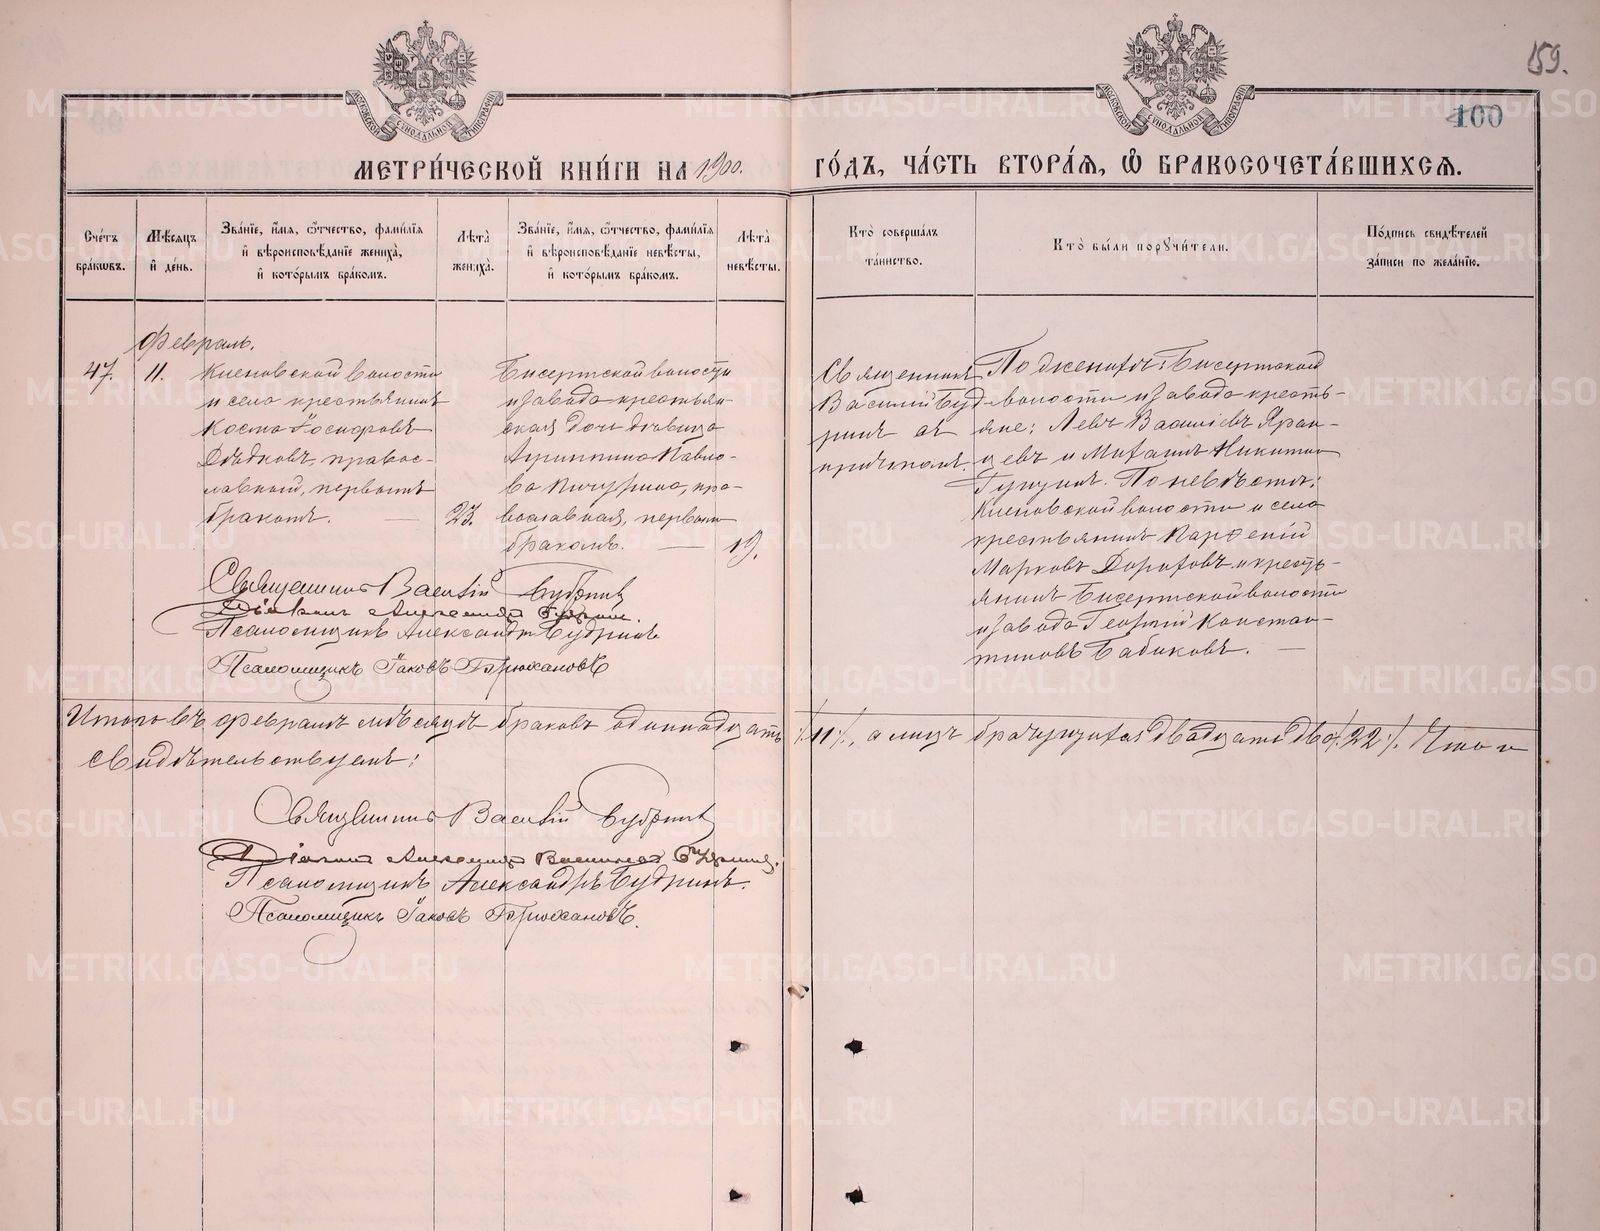 159.
100
МОСКОВСКОЙ СѴНОДАЛЬНОЙ ТИПОГРАФІИ
МОСКОВСКОЙ СѴНОДАЛЬНОЙ ТИПОГРАФІИ
МЕТРИ́ЧЕСКОЙ КНИ́ГИ НА 1900.
ГО́ДЪ, ЧА́СТЬ ВТОРА́Ѧ, Ѡ҆ БРАКОСОЧЕТА́ВШИХСѦ.
Сче́тъ бра́кѡвъ.
Мѣ́сѧцъ и҆ де́нь.
Зва́нїе, и҆́мѧ, ѻ҆́тчество, фами́лїѧ и҆ вѣроисповѣ́данїе жениха̀, и҆ кото́рымъ бра́комъ.
Лѣта̀ жениха̀.
Зва́нїе, и҆́мѧ, ѻ҆́тчество, фами́лїѧ и҆ вѣроисповѣ́данїе невѣ́сты, и҆ кото́рымъ бра́комъ.
Лѣта̀ невѣ́сты.
Кто̀ соверша́лъ та́инство.
Кто̀ бы́ли порꙋчи́тели.
По́дпись свидѣ́телей за́писи по жела́нїю.
Февраль.
47.
11.
Кленовской волости
и села крестьянинъ
Косма Іосифовъ
Дѣдковъ, правос-
лавный, первымъ
бракомъ.
23.
Бисертской волости
и завода крестьян-
ская дочь дѣвица
Агриппина Павло-
ва Пичугина, пра-
вославная, первымъ
бракомъ.
19.
Священникъ
Василій Буд-
ринъ съ
причтомъ.
По женихѣ: Бисертской
волости и завода кресть-
яне: Левъ Васильевъ Яран-
цевъ и Михаилъ Никитинъ
По невѣстѣ:
Кленовской волости и села
крестьянинъ Парѳеній
Марковъ Дороховъ и кресть-
янинъ Бисертской волости
и завода Георгій Констан-
тиновъ Бабиковъ.
Священникъ Василій Будринъ
Діаконъ
Псаломщикъ Александръ Будринъ.
Псаломщикъ Іаковъ
Итого въ февралѣ мѣсяцѣ браковъ одиннадцать /:11:/, а лицъ брачущихся двадцать два /:22:/. Что и
свидѣтельствуемъ:
Священникъ Василій Будринъ
Діаконъ
Псаломщикъ Александръ Будринъ.
Псаломщикъ Іаковъ
METRIKI.GASO-URAL.RU